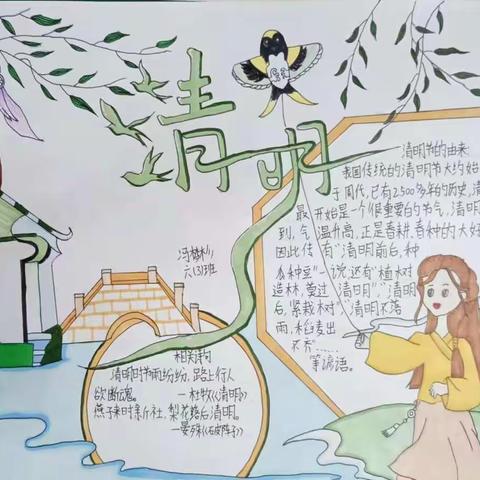 清明
冯
六(3)班
清明节的由来:
我国传统的清明节大约始
于周代,已有2500多年的历史,清
最开始是一个很重要的节气,清明
到,气温升高,正是春耕、春种的大好
因此传有“清明前后,种
瓜种豆”一说,还有“植树
造林,莫过“清明”,“清明
后,紧栽树”“清明不落
雨,麦出
不齐”……
等谚语。
相关诗句
清明时节雨纷纷,路上行人
欲断魂。
—杜牧《清明》
燕子来时新社,梨花落后清明。
—晏殊《破阵子》